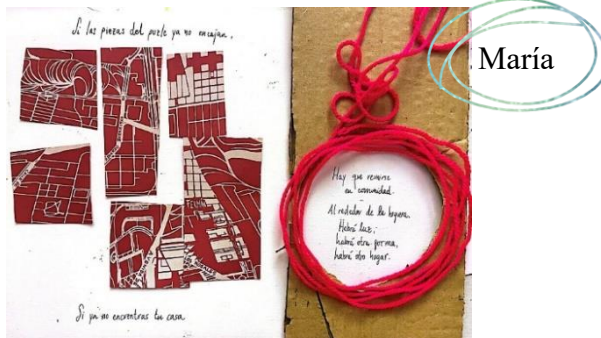 Si las piezas del puzle ya no encajan.
Si ya no encuentras tu casa
Hay que reunirse
en comunidad.
Alrededor de la hoguera.
Habrá luz,
habrá otra forma,
habrá otro hogar.
María